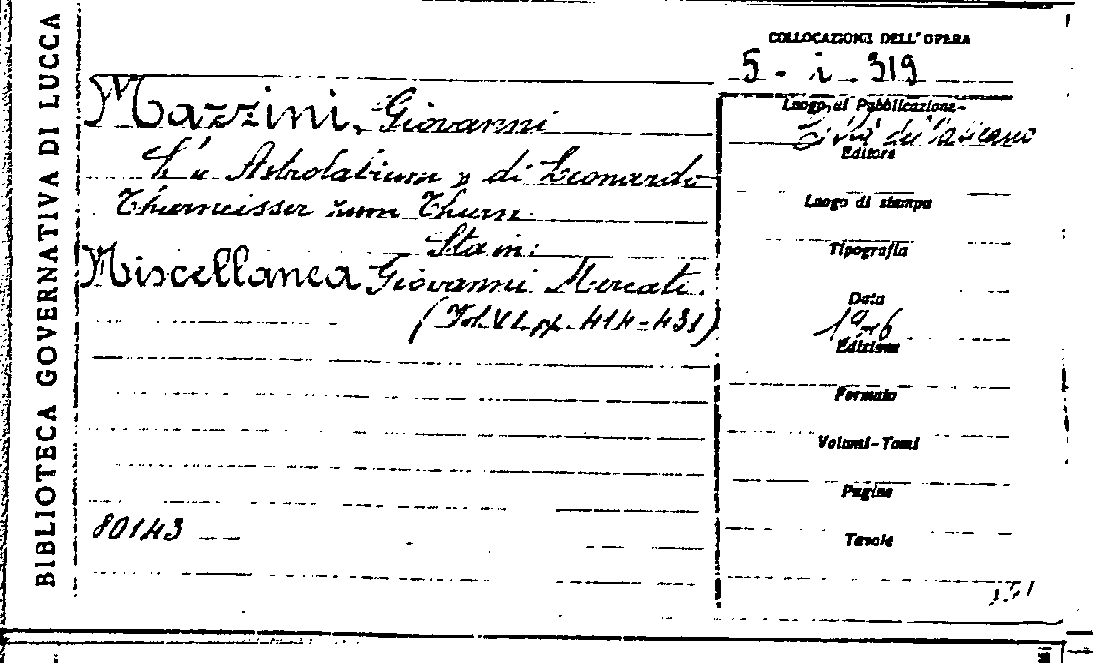 BIBLIOTECA GOVERNATIVA DI LUCCA
COLLOCAZIONI DELL'OPERA
5 - i . 319
Mazzini, Giovanni
L'« Astrolabium » di Leonardo
Thurneisser zum Thurn.
Sta in:
Miscellanea Giovanni Mercati.
(Vol. VI. pp. 414-431)
80143
Luogo di Pubblicazione
Città del Vaticano
Editore
Luogo di stampa
Tipografia
Data
1946
Edizione
Formato
Volumi-Tomi
Pagine
Tavole